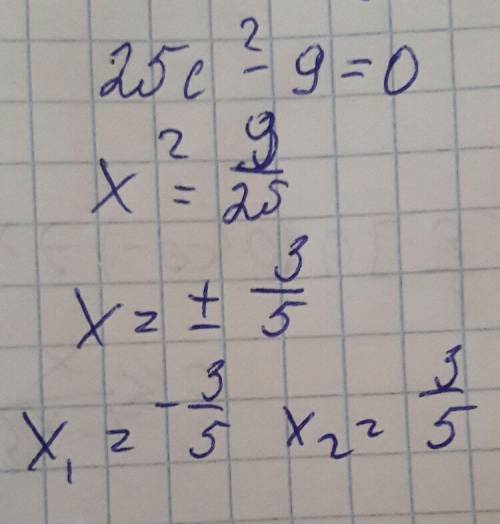 25c² - 9 = 0
x² = 9/25
x = ± 3/5
x₁ = - 3/5 x₂ = 3/5